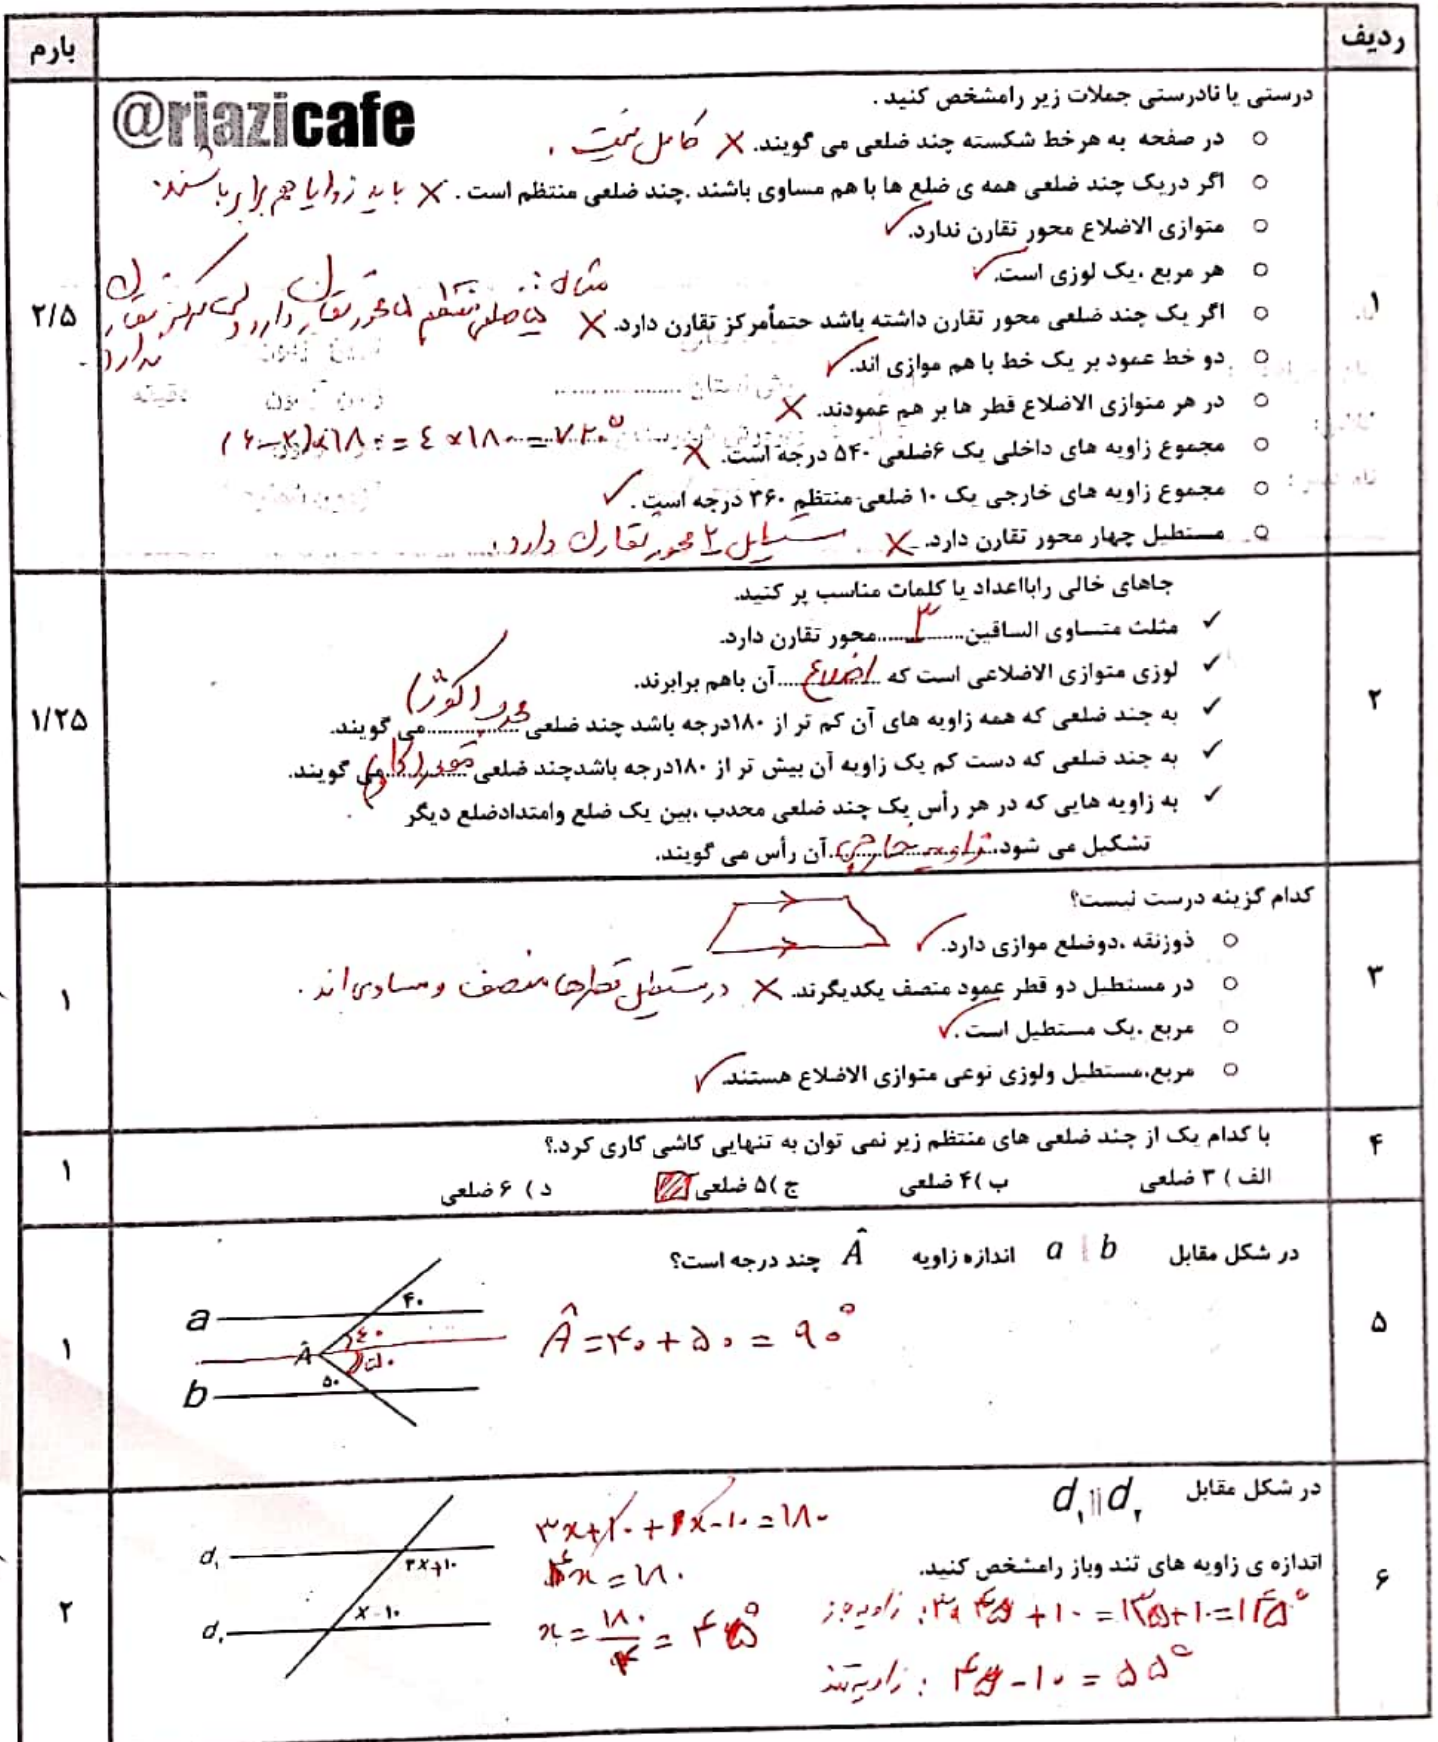 ردیف
بارم
@riazicafe
۱
۲/۵
درستی یا نادرستی جملات زیر رامشخص کنید .
در صفحه به هرخط شکسته چند ضلعی می گویند. × کامل نیست .
اگر دریک چند ضلعی همه ی ضلع ها با هم مساوی باشند .چند ضلعی منتظم است . × باید زوایا هم برابر باشند.
متوازی الاضلاع محور تقارن ندارد. ✓
هر مربع ،یک لوزی است. ✓
اگر یک چند ضلعی محور تقارن داشته باشد حتماًمرکز تقارن دارد. × مثال: ۵ ضلعی منتظم ۵ محور تقارن دارد ولی مرکز تقارن ندارد
دو خط عمود بر یک خط با هم موازی اند. ✓
در هر متوازی الاضلاع قطر ها بر هم عمودند. ×
مجموع زاویه های داخلی یک ۶ضلعی ۵۴۰ درجه است. × (۶-۲)×۱۸۰ = ۴×۱۸۰ = ۷۲۰°
مجموع زاویه های خارجی یک ۱۰ ضلعی منتظم ۳۶۰ درجه است . ✓
مستطیل چهار محور تقارن دارد. × مستطیل ۲ محور تقارن دارد.
۲
۱/۲۵
جاهای خالی رابااعداد یا کلمات مناسب پر کنید.
✓ مثلث متساوی الساقین......۳......محور تقارن دارد.
✓ لوزی متوازی الاضلاعی است که ....اضلاع....آن باهم برابرند.
✓ به چند ضلعی که همه زاویه های آن کم تر از ۱۸۰درجه باشد چند ضلعی ....محدب (کوژ)....می گویند.
✓ به چند ضلعی که دست کم یک زاویه آن بیش تر از ۱۸۰درجه باشدچند ضلعی ....مقعر (کاو)....می گویند.
✓ به زاویه هایی که در هر رأس یک چند ضلعی محدب ،بین یک ضلع وامتدادضلع دیگر
تشکیل می شود....زاویه خارجی....آن رأس می گویند.
۳
۱
کدام گزینه درست نیست؟
ذوزنقه ،دوضلع موازی دارد. ✓
در مستطیل دو قطر عمود منصف یکدیگرند. × در مستطیل قطرها منصف و مساوی اند .
مربع ،یک مستطیل است . ✓
مربع،مستطیل ولوزی نوعی متوازی الاضلاع هستند. ✓
۴
۱
با کدام یک از چند ضلعی های منتظم زیر نمی توان به تنهایی کاشی کاری کرد.؟
الف ) ۳ ضلعی ب )۴ ضلعی ج )۵ ضلعی د ) ۶ ضلعی
۵
۱
در شکل مقابل a ∥ b اندازه زاویه Â چند درجه است؟
a
۴۰
۴۰
Â
۵۰
۵۰
b
Â = ۴۰ + ۵۰ = ۹۰°
۶
۲
در شکل مقابل d₁ ∥ d₂
اندازه ی زاویه های تند وباز رامشخص کنید.
d₁
۳x+۱۰
x-۱۰
d₂
۳x+۱۰+x-۱۰=۱۸۰
۴x=۱۸۰
x = ۱۸۰/۴ = ۴۵°
زاویه باز : ۳×۴۵+۱۰ = ۱۳۵+۱۰=۱۴۵°
زاویه تند : ۴۵-۱۰ = ۵۵°